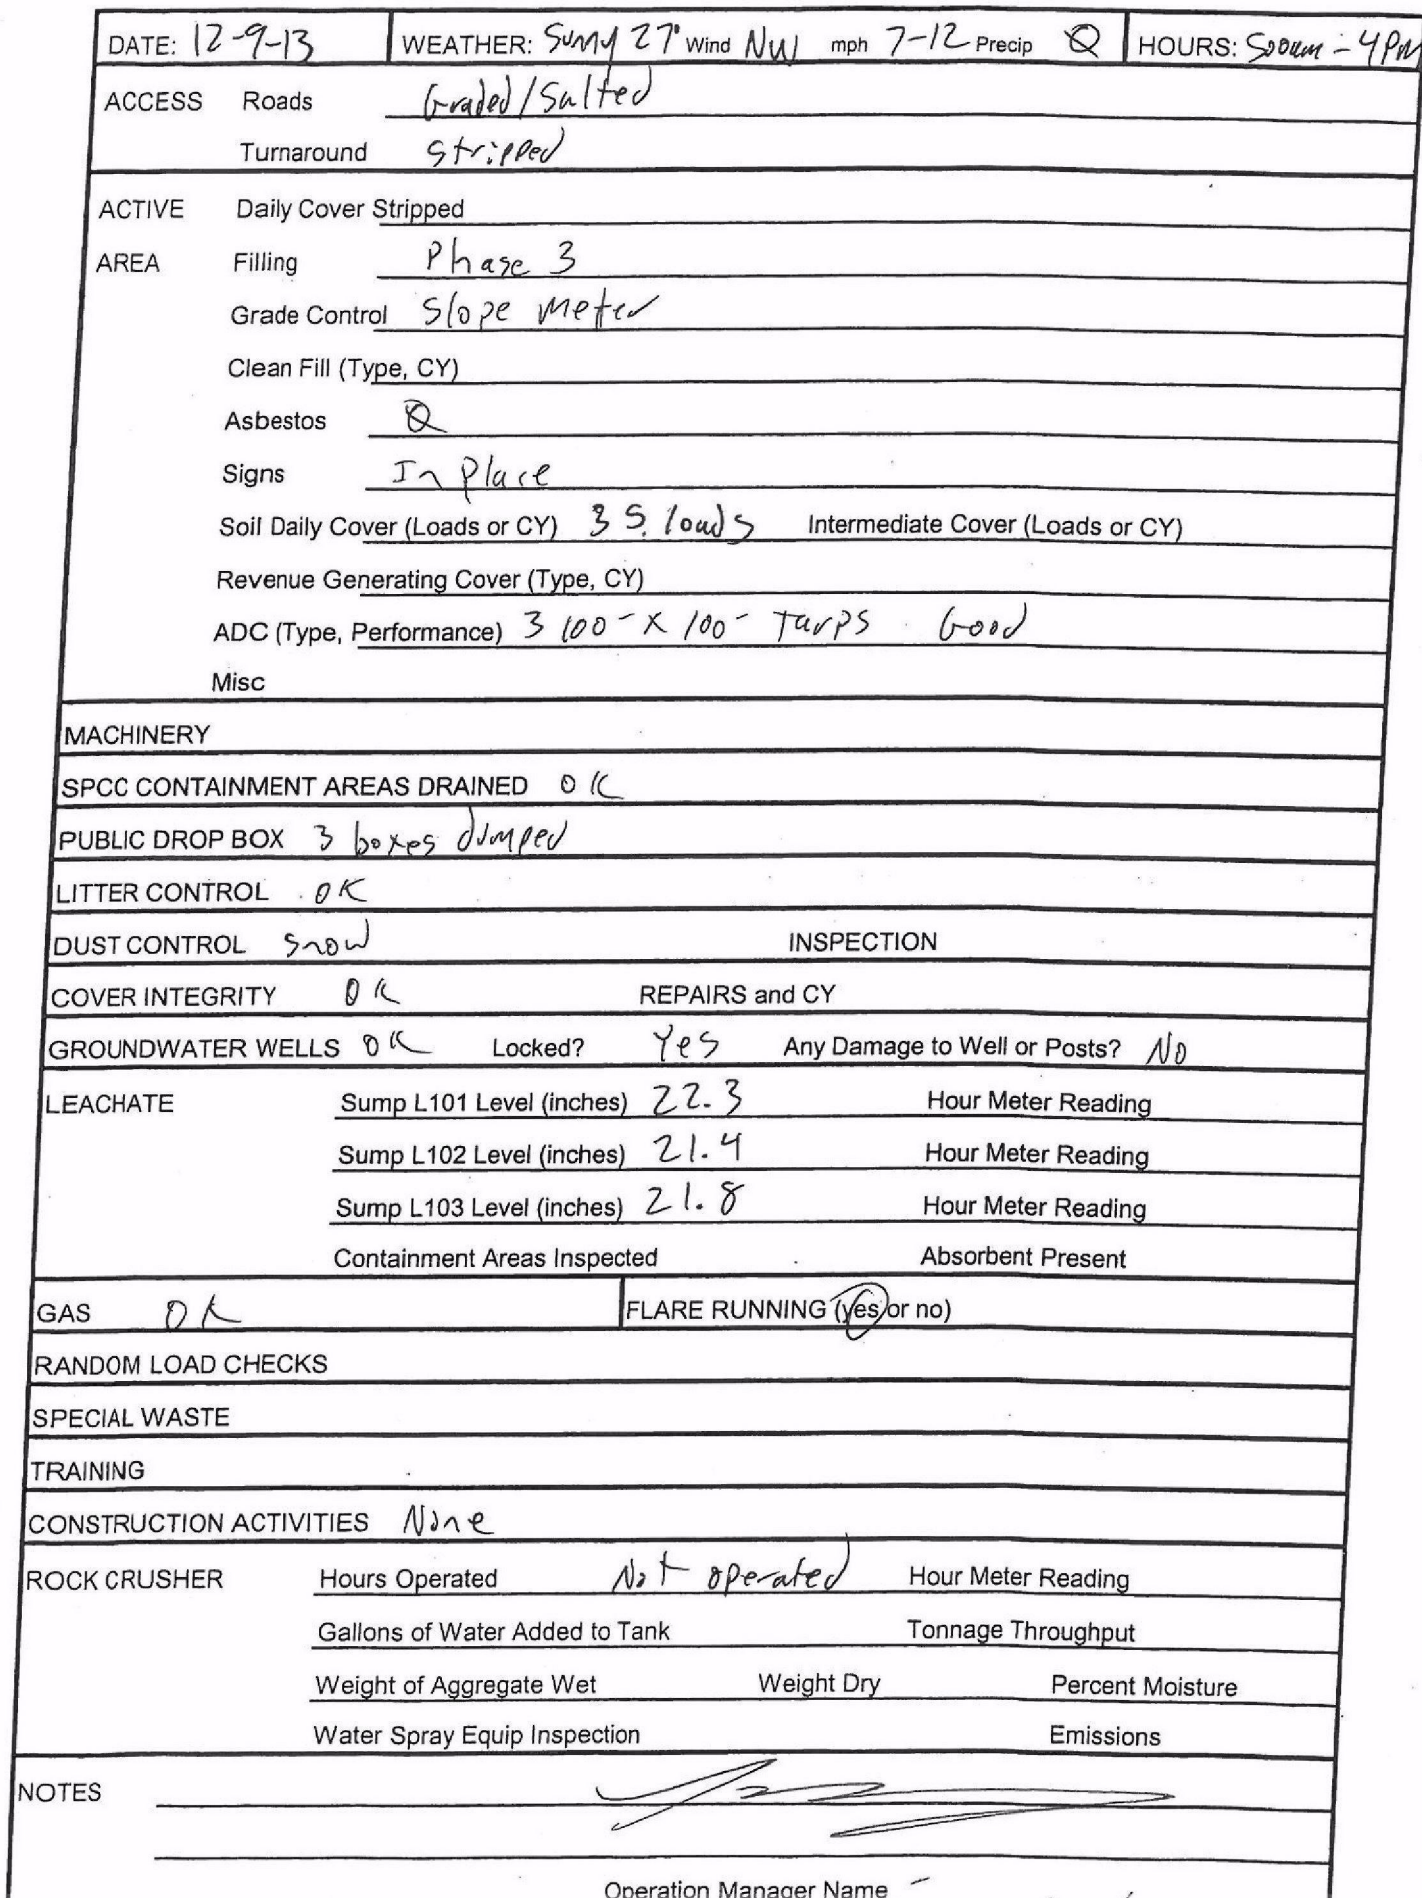 DATE: 12-9-13 WEATHER: Sunny 27° Wind NW mph 7-12 Precip Ø HOURS: 500am - 4PM
ACCESS Roads Graded/Salted
Turnaround Stripped
ACTIVE Daily Cover Stripped
AREA Filling Phase 3
Grade Control Slope Meter
Clean Fill (Type, CY)
Asbestos Ø
Signs In Place
Soil Daily Cover (Loads or CY) 3 S. loads Intermediate Cover (Loads or CY)
Revenue Generating Cover (Type, CY)
ADC (Type, Performance) 3 100- x 100- Tarps Good
Misc
MACHINERY
SPCC CONTAINMENT AREAS DRAINED OK
PUBLIC DROP BOX 3 boxes dumped
LITTER CONTROL OK
DUST CONTROL Snow INSPECTION
COVER INTEGRITY OK REPAIRS and CY
GROUNDWATER WELLS OK Locked? Yes Any Damage to Well or Posts? No
LEACHATE Sump L101 Level (inches) 22.3 Hour Meter Reading
Sump L102 Level (inches) 21.4 Hour Meter Reading
Sump L103 Level (inches) 21.8 Hour Meter Reading
Containment Areas Inspected Absorbent Present
GAS OK FLARE RUNNING (yes or no)
RANDOM LOAD CHECKS
SPECIAL WASTE
TRAINING
CONSTRUCTION ACTIVITIES None
ROCK CRUSHER Hours Operated Not operated Hour Meter Reading
Gallons of Water Added to Tank Tonnage Throughput
Weight of Aggregate Wet Weight Dry Percent Moisture
Water Spray Equip Inspection Emissions
NOTES
Operation Manager Name